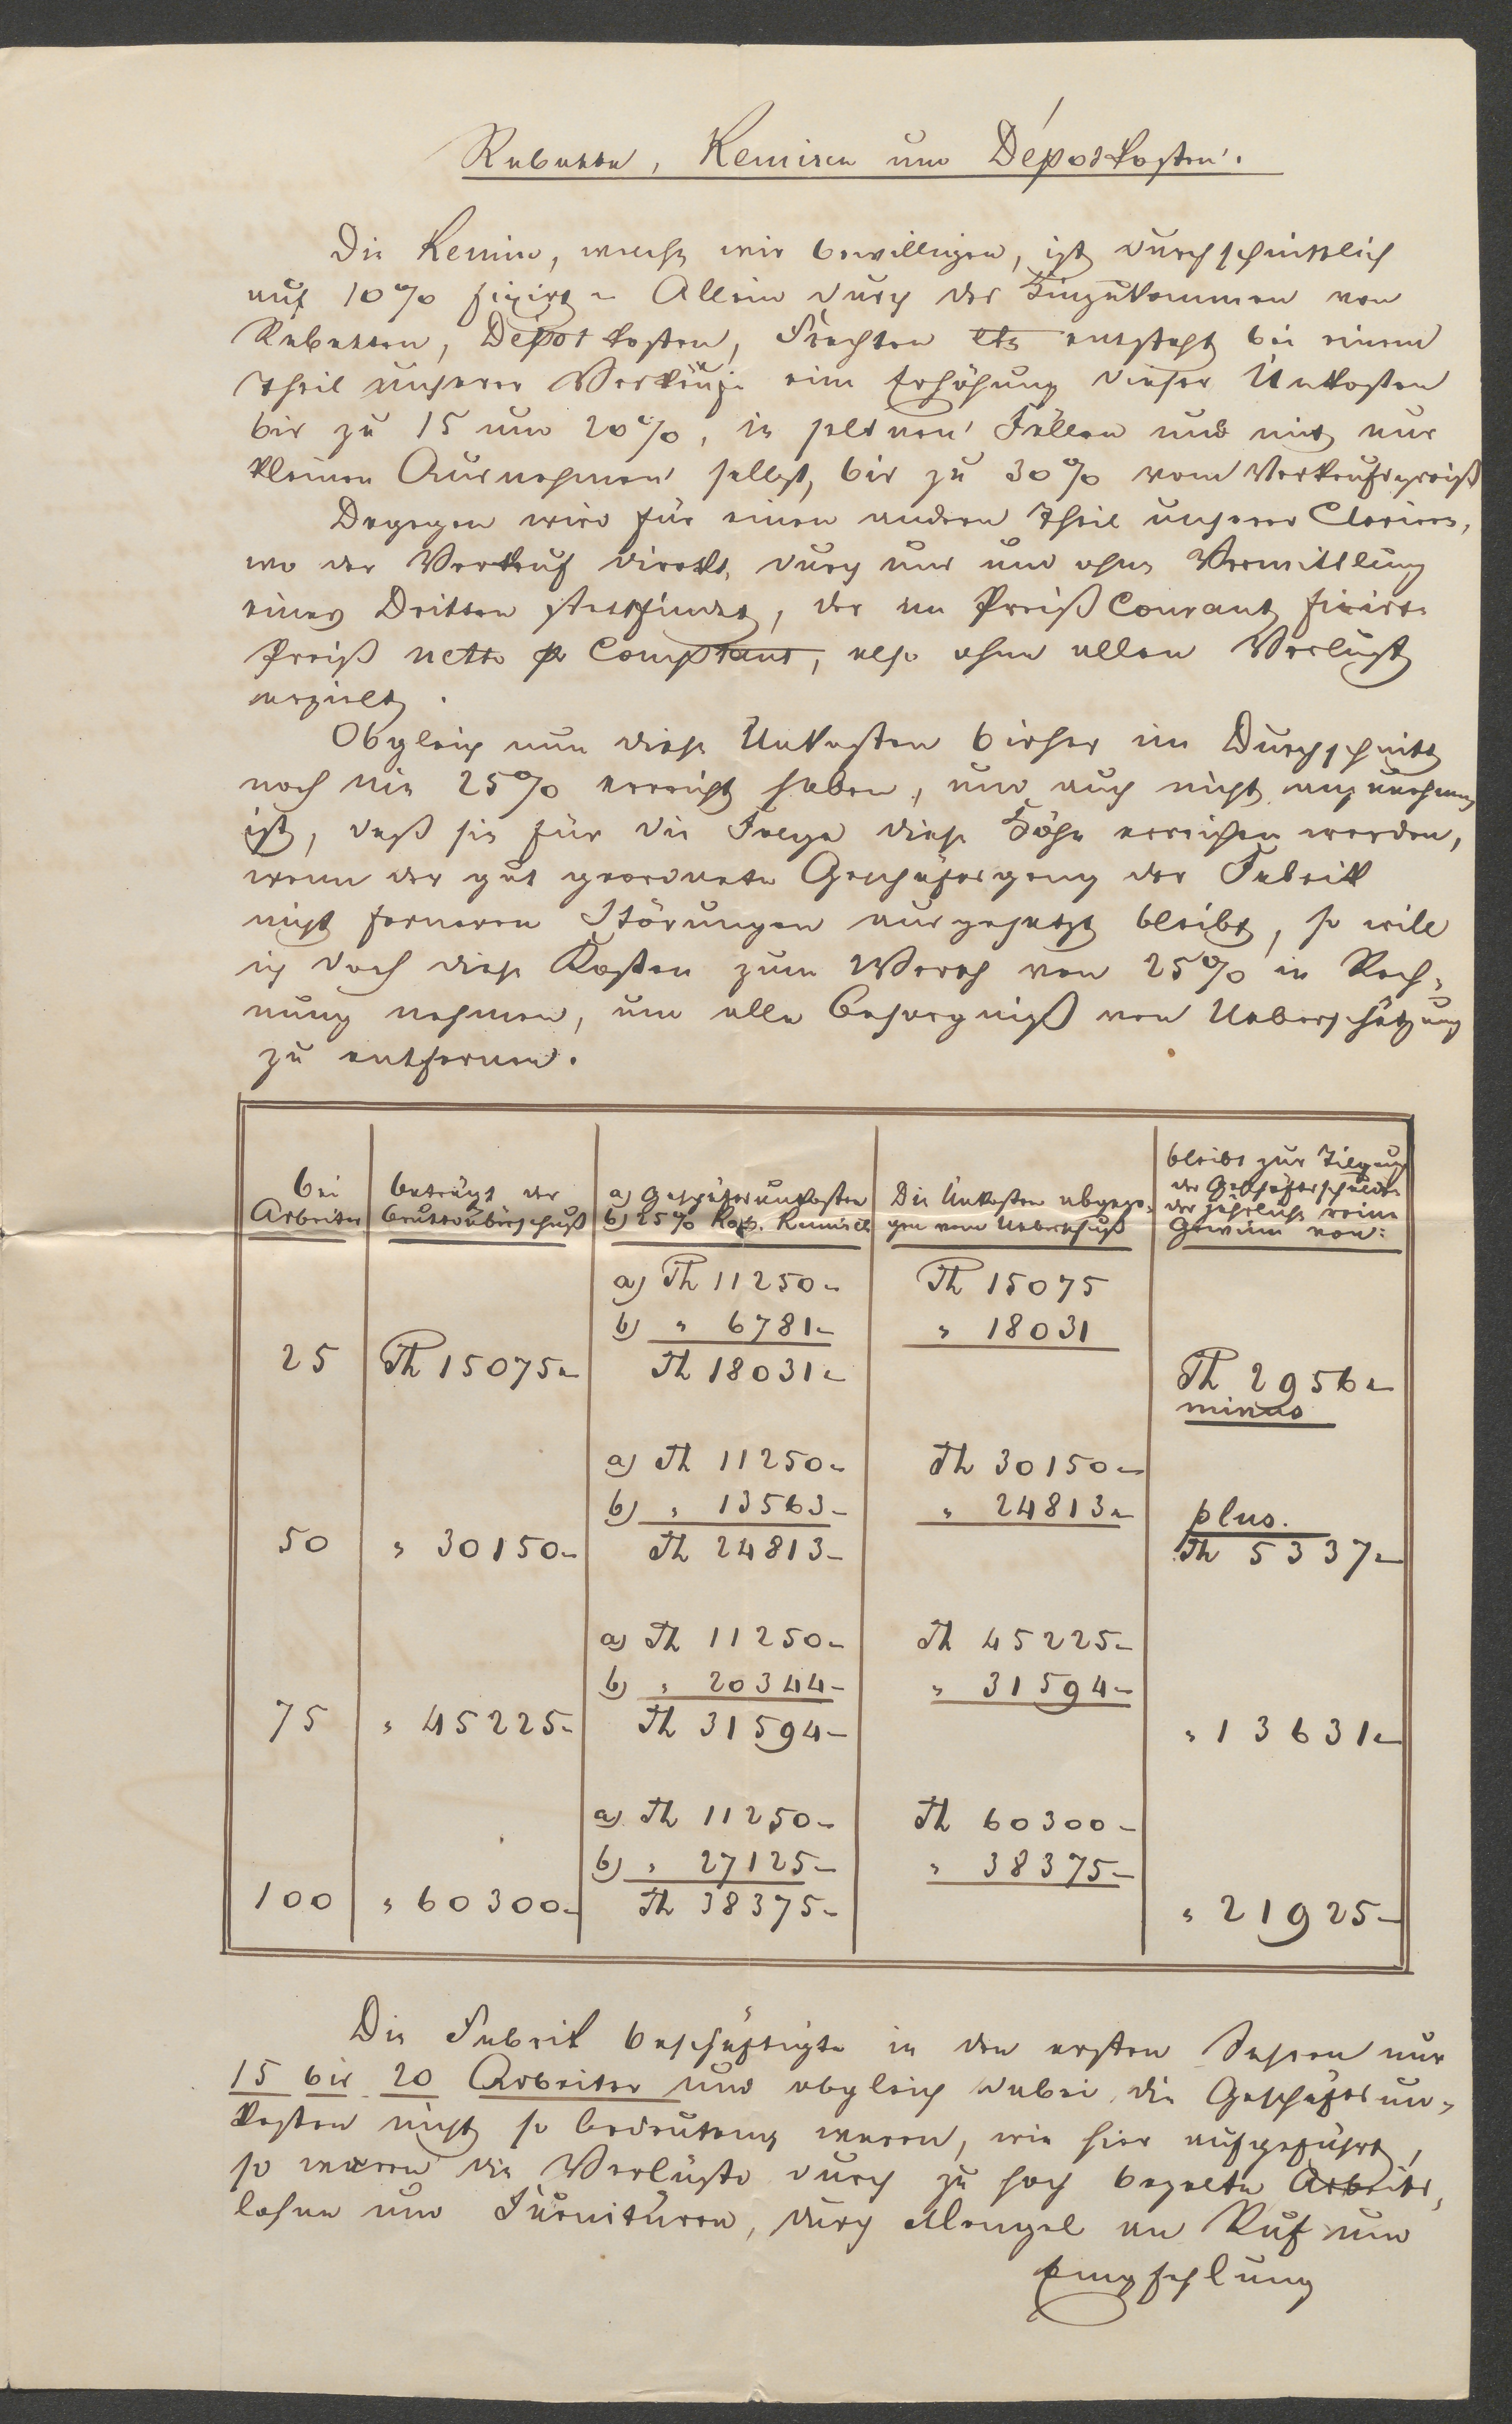 Rabatte, Remisen und Dépotkosten.
Die Remise, welche wir bewilligen, ist durchschnittlich
auf 10% fixirt. Allein durch das Hinzukommen von
Rabatten, Dépotkosten, Frachten etc entsteht bei einem
Theil unserer Verkäufe eine Erhöhung dieser Unkosten
bis zu 15 und 20%, in seltnen Fällen und mit nur
kleinen Ausnahmen selbst, bis zu 30% vom Verkaufspreiß
Dagegen wird für einen andern Theil unserer Claviere,
wo der Verkauf direkt durch uns und ohne Vermittlung
eines Dritten stattfindet, der im Preiß Courant fixirte
Preiß netto pr Comptant, also ohne allen Verlust
erzielt.
Obgleich nun diese Unkosten bisher im Durchschnitt
noch nie 25% erreicht haben, und auch nicht anzunehmen
ist, daß sie für die Folge diese Höhe erreichen werden,
wenn der gut geordnete Geschäftsgang der Fabrik
nicht ferneren Störungen ausgesetzt bleibt, so will
ich doch diese Kosten zum Werth von 25% in Rech-
nung nehmen, um alle Besorgniß von Ueberschätzung
zu entfernen.
bei
Arbeiter
beträgt der
Bruttoüberschuß
a) Geschäftsunkosten
b) 25% Rab. Remisen
Die Unkosten abgezo-
gen vom Ueberschuß
bleibt zur Tilgung
der Geschäftsschulden
der jährliche reine
Gewinn von:
a) Th 11250- Th 15075
b) " 6781- " 18031
25 Th 15075- Th 18031- Th 2956-
minus
a) Th 11250- Th 30150-
b) " 13563- " 24813- plus.
50 " 30150- Th 24813- Th 5337-
a) Th 11250- Th 45225-
b) " 20344- " 31594-
75 " 45225- Th 31594- " 13631-
a) Th 11250- Th 60300-
b) " 27125- " 38375-
100 " 60300- Th 38375- " 21925-
Die Fabrik beschäftigte in den ersten Jahren nur
15 bis 20 Arbeiter und obgleich dabei die Geschäftsun-
kosten nicht so bedeutend waren, wie hier aufgeführt,
so waren die Verluste durch zu hoch bezalte Arbeits-
lohne und Furnituren, durch Mangel an Ruf und
Empfehlung